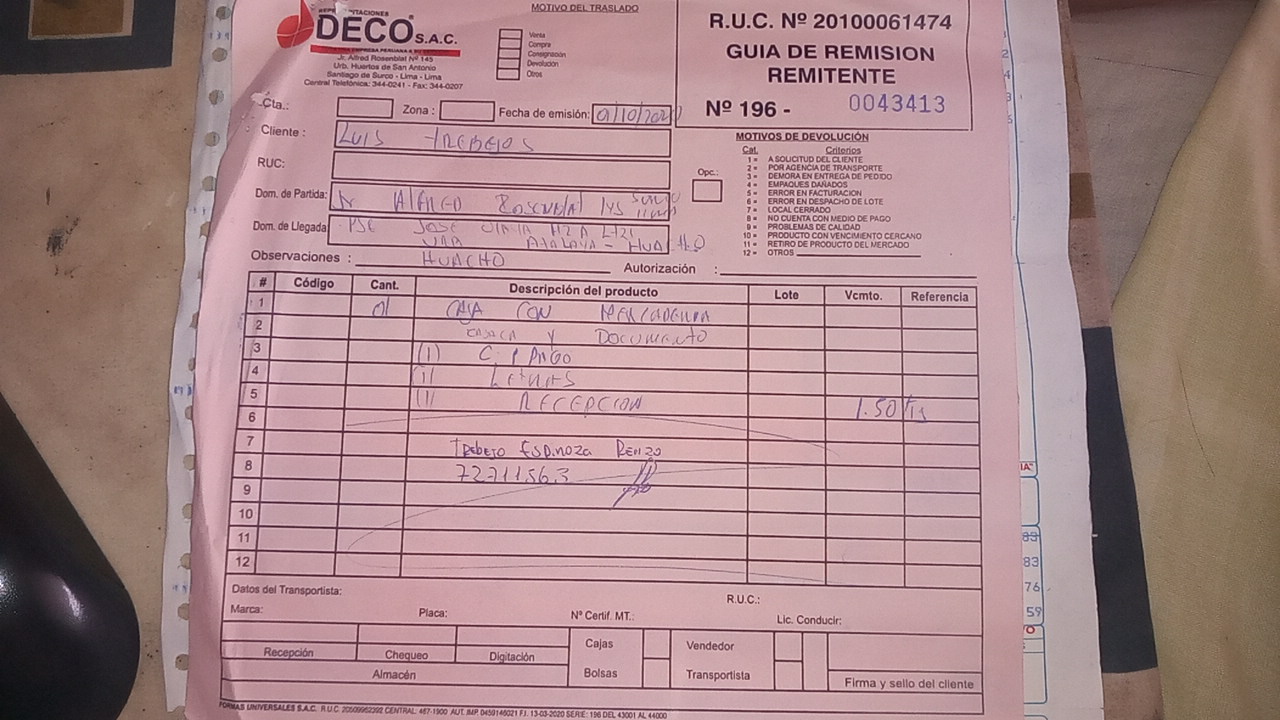 REPRESENTACIONES
DECO S.A.C.
UNA EMPRESA PERUANA A SU SERVICIO
Jr. Alfred Rosenblat Nº 145
Urb. Huertos de San Antonio
Santiago de Surco - Lima - Lima
Central Telefónica: 344-0241 - Fax: 344-0207
MOTIVO DEL TRASLADO
Venta
Compra
Consignación
Devolución
Otros
R.U.C. Nº 20100061474
GUIA DE REMISION
REMITENTE
Nº 196 - 0043413
Cta.:
Zona :
Fecha de emisión: 01/10/202
Cliente : LUIS TREBEJOS
RUC:
Dom. de Partida: Jr Alfred Rosenblat 145 Surco Lima
Dom. de Llegada: PSE JOSE OLAYA MZ A LT21
URB ATALAYA - HUACHO
Observaciones : HUACHO
Autorización :
Opc.:
MOTIVOS DE DEVOLUCIÓN
Cat. Criterios
1 = A SOLICITUD DEL CLIENTE
2 = POR AGENCIA DE TRANSPORTE
3 = DEMORA EN ENTREGA DE PEDIDO
4 = EMPAQUES DAÑADOS
5 = ERROR EN FACTURACION
6 = ERROR EN DESPACHO DE LOTE
7 = LOCAL CERRADO
8 = NO CUENTA CON MEDIO DE PAGO
9 = PROBLEMAS DE CALIDAD
10 = PRODUCTO CON VENCIMIENTO CERCANO
11 = RETIRO DE PRODUCTO DEL MERCADO
12 = OTROS
# Código Cant. Descripción del producto Lote Vcmto. Referencia
1 01 CAJA CON MERCADERIA
2 CASACA Y DOCUMENTO
3 (1) C. PAGO
4 (1) LETRAS
5 (1) RECEPCION 1.50
6
7 TREBEJO ESPINOZA RENZO
8 72711563
9
10
11
12
Datos del Transportista:
R.U.C.:
Marca:
Placa:
Nº Certif. MT.:
Lic. Conducir:
Recepción Chequeo Digitación
Almacén
Cajas
Bolsas
Vendedor
Transportista
Firma y sello del cliente
FORMAS UNIVERSALES S.A.C. R.U.C 20509962392 CENTRAL: 467-1900 AUT. IMP. 0459146021 F.I. 13-03-2020 SERIE: 196 DEL 43001 AL 44000
83
83
76
59